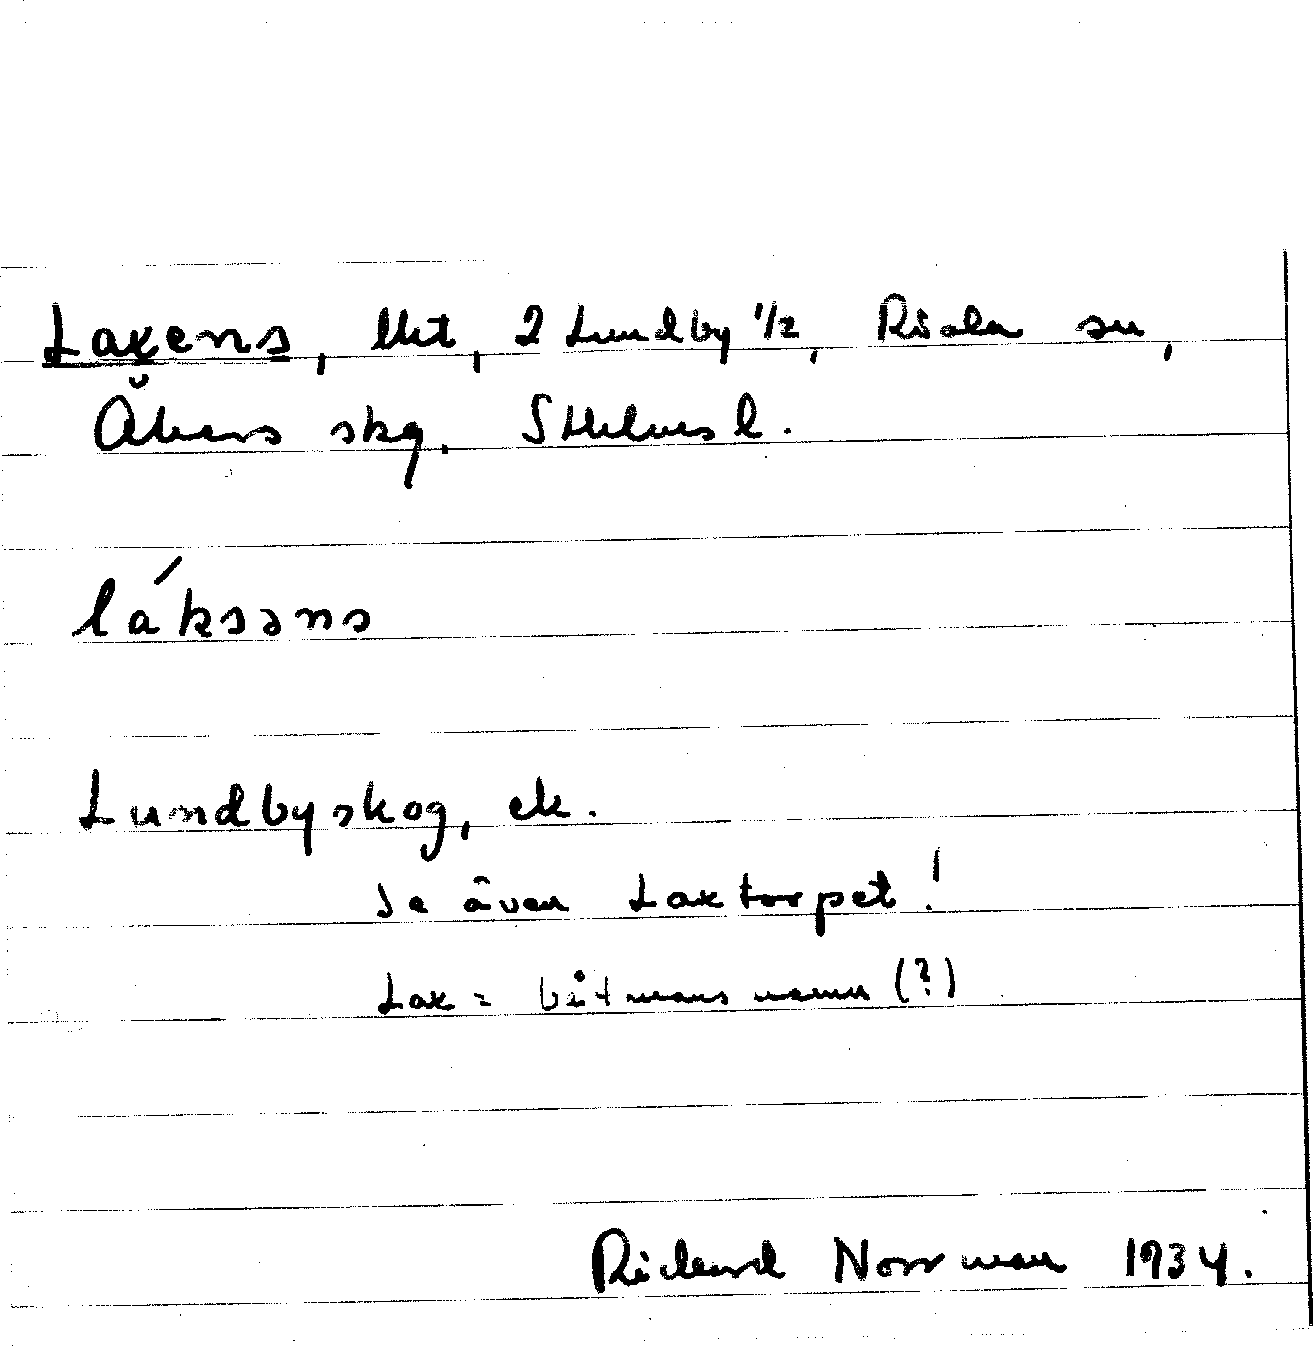 Laxens, lht, 2 Lundby 1/2, Riala sn,
Åkers skg. Sthlms l.
láksəns
Lundbyskog, ek.
Se även Laxtorpet!
Lax = båtmansnamn (?)
Rickard Norrman 1934.